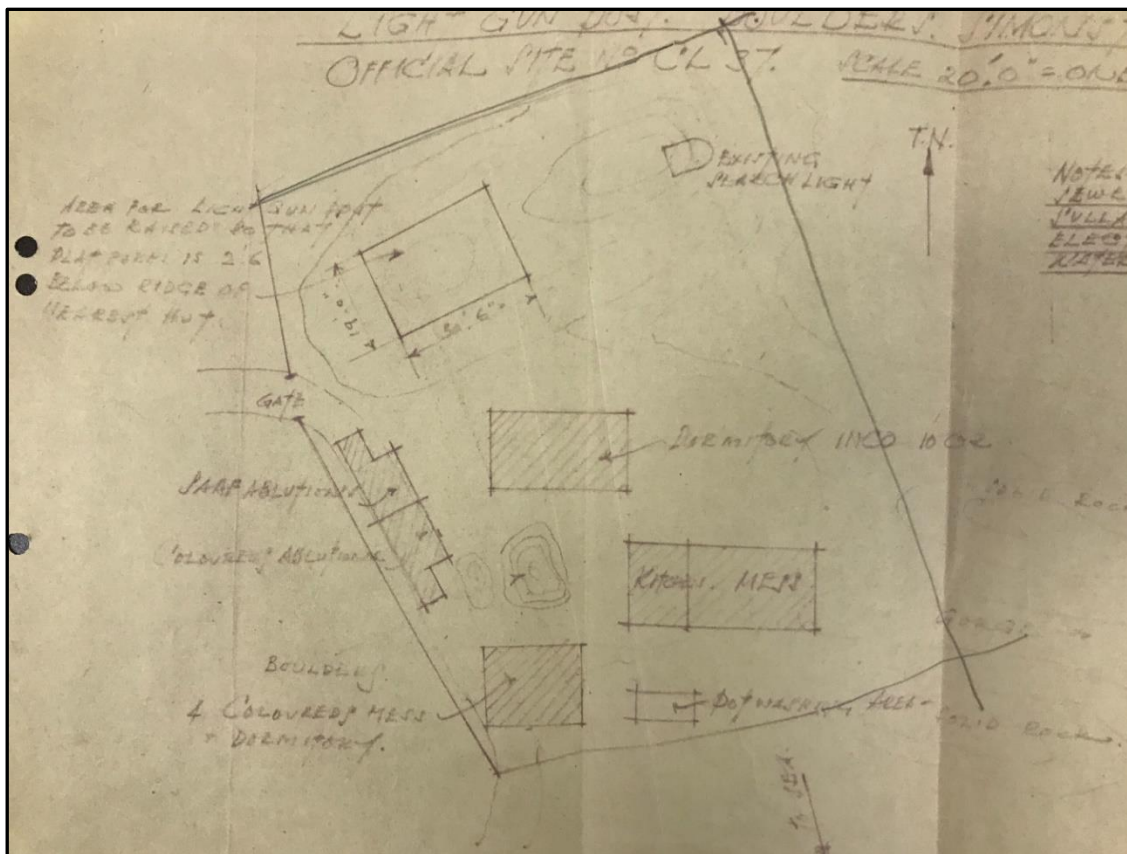 LIGHT GUN POST. BOULDERS. SIMONS
OFFICIAL SITE NO CL 37. SCALE 20'.0" = ONE
T.N.
EXISTING
SEARCH LIGHT
NOTES
SEWE
SULLA
ELECT
WATER
AREA FOR LIGHT GUN POST
TO BE RAISED SO THAT
PLATFORM IS 2'6
BELOW RIDGE OF
NEAREST HUT.
19'.0"
30'.6"
GATE
DORMITORY 1 NCO 10 OR
SOLID ROCK
SAAF ABLUTIONS
COLOUREDS ABLUTIONS
KITCHEN. MESS
BOULDERS
4 COLOUREDS MESS
+ DORMITORY.
WASHING AREA
SOLID ROCK.
TO SEA